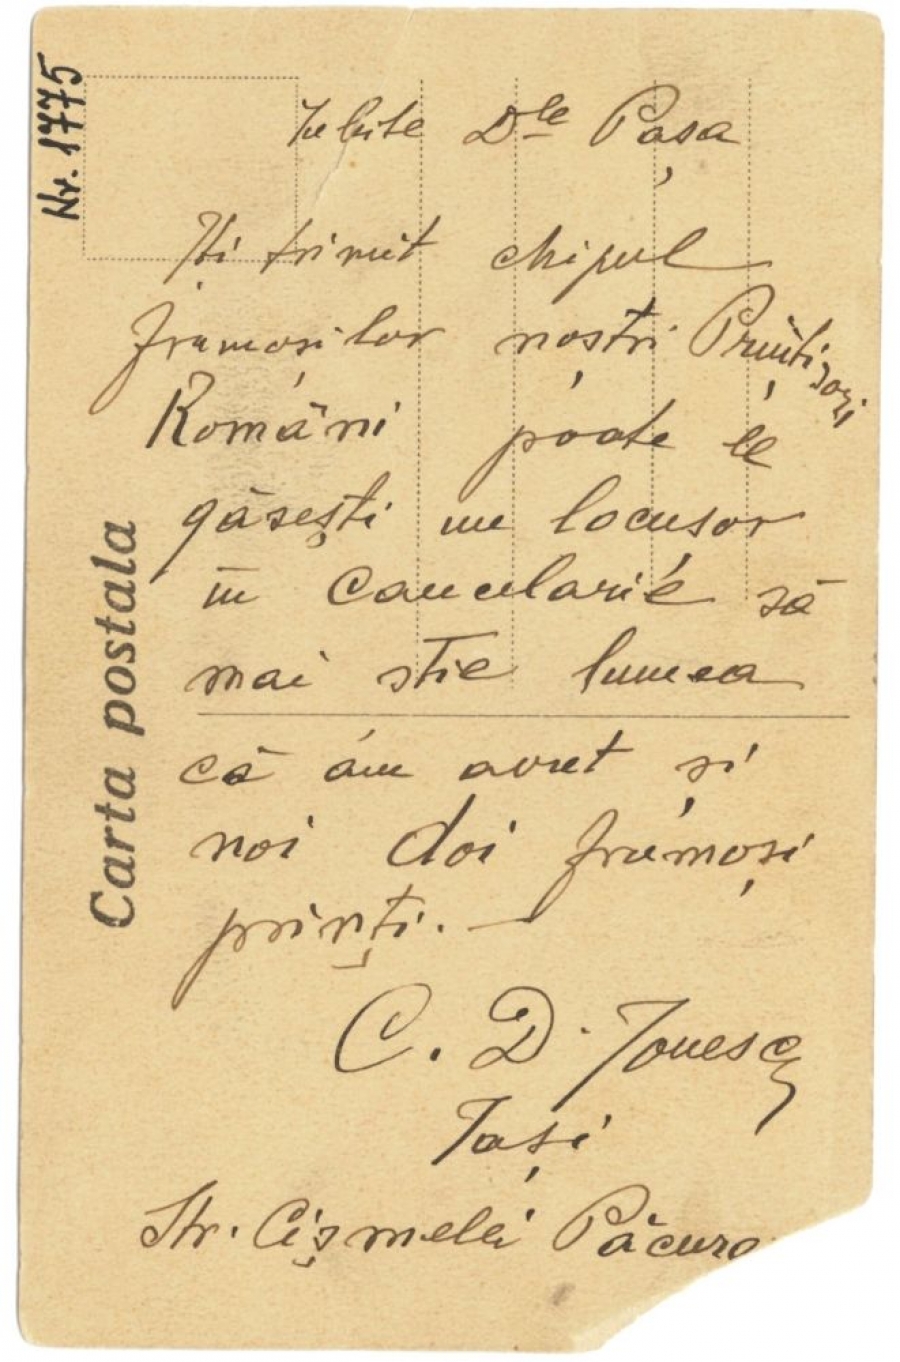 Nr. 1775
Carta postala
Iubite Dle Pașa
Iți trimit chipul
frumoșilor noștri Prințișori
Români poate le
găsești un locusor
în cancelarie să
mai stie lumea
că am avut și
noi doi frumoși
prinți. —
C. D. Ionescu
Iași
Str. Cișmelei Păcura